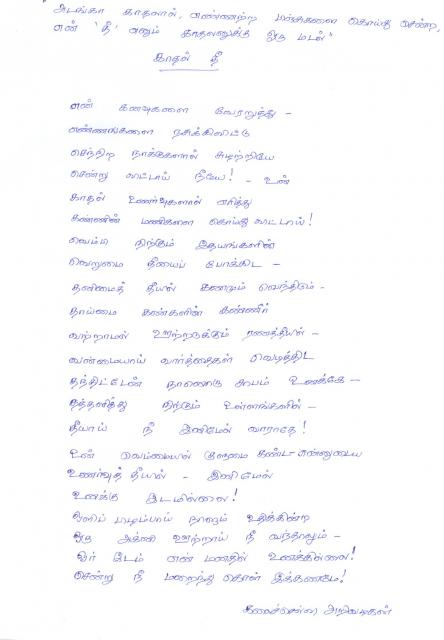 அடங்கா காதலால், எண்ணற்ற மலர்களை கொய்து சென்ற,
என் 'தீ' எனும் காதலனுக்கு ஒரு மடல்"
காதல் தீ
என் கனவுகளை வேரறுத்து -
எண்ணங்களை நசுக்கிவிட்டு
செந்நிற நாக்குகளால் சுழற்றியே
சென்று விட்டாய் நீயே! - உன்
காதல் உணர்வுகளால் எரித்து
கண்ணின் மணிகளை கொய்து விட்டாய்!
வெம்பி நிற்கும் இதயங்களின்
வெறுமை தீயைப் போக்கிட -
தனிமைத் தீயில் கணமும் வெந்திடும் -
தாய்மை கண்களின் கண்ணீர்
வற்றாமல் ஊற்றெடுக்கும் ரணத்தீயில் -
வன்மையாய் வார்த்தைகள் வெடித்திட
தந்திட்டேன் நானொரு சாபம் உனக்கே -
தத்தளித்து நிற்கும் உள்ளங்களின் -
தீயாய் நீ இனிமேல் வாராதே!
உன் வெம்மையின் கொடுமை கண்ட என்னுடைய
உணர்வுத் தீயில் - இனிமேல்
உனக்கு இடமில்லை!
ஒளிப் பிழம்பாய் நாளும் உதிக்கின்ற
ஒரு அக்னி ஊற்றாய் நீ வந்தாலும் -
ஓர் இடம் என் மனதில் உனக்கில்லை!
சென்று நீ மறைந்து கொள் இக்கணமே!